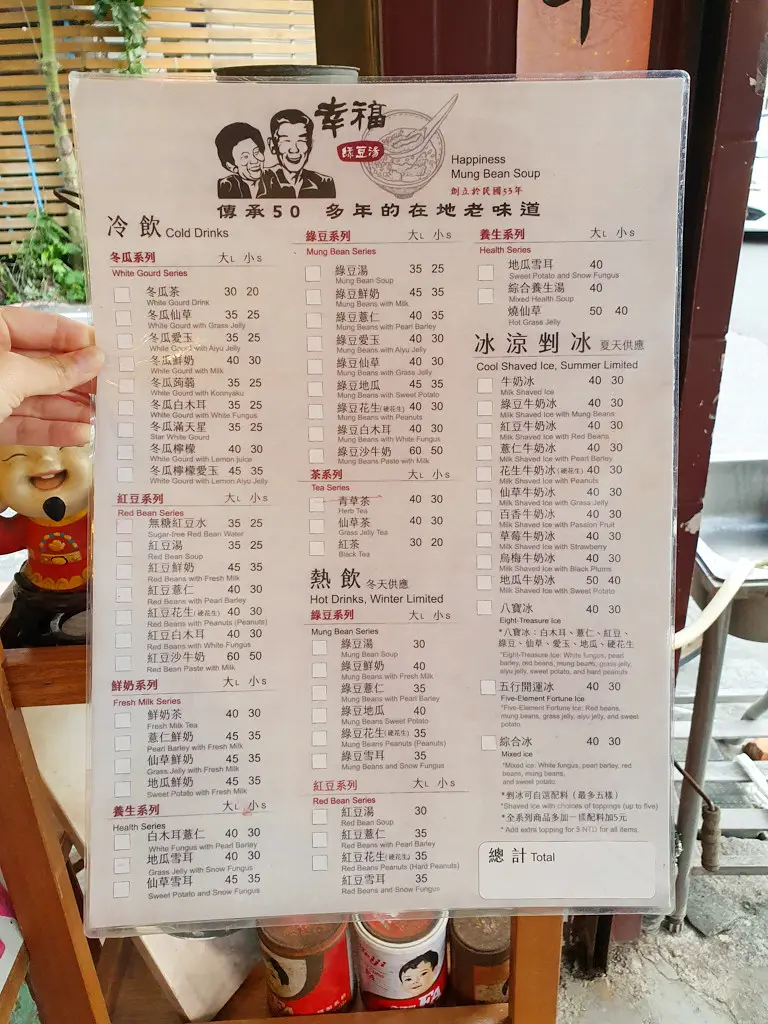 幸福
綠豆湯
Happiness
Mung Bean Soup
創立於民國53年
傳承50 多年的在地老味道
冷飲 Cold Drinks
冬瓜系列 大L 小S
White Gourd Series
冬瓜茶 30 20
White Gourd Drink
冬瓜仙草 35 25
White Gourd with Grass Jelly
冬瓜愛玉 35 25
White Gourd with Aiyu Jelly
冬瓜鮮奶 40 30
White Gourd with Milk
冬瓜蒟蒻 35 25
White Gourd with Konnyaku
冬瓜白木耳 35 25
White Gourd with White Fungus
冬瓜滿天星 35 25
Star White Gourd
冬瓜檸檬 40 30
White Gourd with Lemon juice
冬瓜檸檬愛玉 45 35
White Gourd with Lemon Aiyu Jelly
紅豆系列 大L 小S
Red Bean Series
無糖紅豆水 35 25
Sugar-free Red Bean Water
紅豆湯 35 25
Red Bean Soup
紅豆鮮奶 45 35
Red Beans with Fresh Milk
紅豆薏仁 40 30
Red Beans with Pearl Barley
紅豆花生(硬花生) 40 30
Red Beans with Peanuts (Peanuts)
紅豆白木耳 40 30
Red Beans with White Fungus
紅豆沙牛奶 60 50
Red Bean Paste with Milk
鮮奶系列 大L 小S
Fresh Milk Series
鮮奶茶 40 30
Fresh Milk Tea
薏仁鮮奶 45 35
Pearl Barley with Fresh Milk
仙草鮮奶 45 35
Grass Jelly with Fresh Milk
地瓜鮮奶 45 35
Sweet Potato with Fresh Milk
養生系列 大L 小S
Health Series
白木耳薏仁 40 30
White Fungus with Pearl Barley
地瓜雪耳 40 30
Grass Jelly with Snow Fungus
仙草雪耳 45 35
Sweet Potato and Snow Fungus
綠豆系列 大L 小S
Mung Bean Series
綠豆湯 35 25
Mung Bean Soup
綠豆鮮奶 45 35
Mung Beans with Milk
綠豆薏仁 40 30
Mung Beans with Pearl Barley
綠豆愛玉 40 30
Mung Beans with Aiyu Jelly
綠豆仙草 40 30
Mung Beans with Grass Jelly
綠豆地瓜 45 35
Mung Beans with Sweet Potato
綠豆花生(硬花生) 40 30
Mung Beans with Peanuts
綠豆白木耳 40 30
Mung Beans with White Fungus
綠豆沙牛奶 60 50
Mung Beans Paste with Milk
茶系列 大L 小S
Tea Series
青草茶 40 30
Herb Tea
仙草茶 40 30
Grass Jelly Tea
紅茶 30 20
Black Tea
熱飲 冬天供應
Hot Drinks, Winter Limited
綠豆系列 大L 小S
Mung Bean Series
綠豆湯 30
Mung Bean Soup
綠豆鮮奶 40
Mung Beans with Fresh Milk
綠豆薏仁 35
Mung Beans with Pearl Barley
綠豆地瓜 40
Mung Beans Sweet Potato
綠豆花生(硬花生) 35
Mung Beans Peanuts (Peanuts)
綠豆雪耳 35
Mung Beans and Snow Fungus
紅豆系列 大L 小S
Red Bean Series
紅豆湯 30
Red Bean Soup
紅豆薏仁 35
Red Beans with Pearl Barley
紅豆花生(硬花生) 35
Red Beans Peanuts (Hard Peanuts)
紅豆雪耳 35
Red Beans and Snow Fungus
養生系列 大L 小S
Health Series
地瓜雪耳 40
Sweet Potato and Snow Fungus
綜合養生湯 40
Mixed Health Soup
燒仙草 50 40
Hot Grass Jelly
冰涼剉冰 夏天供應
Cool Shaved Ice, Summer Limited
牛奶冰 40 30
Milk Shaved Ice
綠豆牛奶冰 40 30
Milk Shaved Ice with Mung Beans
紅豆牛奶冰 40 30
Milk Shaved Ice with Red Beans
薏仁牛奶冰 40 30
Milk Shaved Ice with Pearl Barley
花生牛奶冰(硬花生) 40 30
Milk Shaved Ice with Peanuts
仙草牛奶冰 40 30
Milk Shaved Ice with Grass Jelly
百香牛奶冰 40 30
Milk Shaved Ice with Passion Fruit
草莓牛奶冰 40 30
Milk Shaved Ice with Strawberry
烏梅牛奶冰 40 30
Milk Shaved Ice with Black Plums
地瓜牛奶冰 50 40
Milk Shaved Ice with Sweet Potato
八寶冰 40 30
Eight-Treasure Ice
*八寶冰:白木耳、薏仁、紅豆、
綠豆、仙草、愛玉、地瓜、硬花生
*Eight-Treasure Ice: White fungus, pearl
barley, red beans, mung beans, grass jelly,
aiyu jelly, sweet potato, and hard peanuts
五行開運冰 40 30
Five-Element Fortune Ice
*Five-Element Fortune Ice: Red beans,
mung beans, grass jelly, aiyu jelly, and sweet
potato
綜合冰 40 30
Mixed ice
*Mixed ice: White fungus, pearl barley, red
beans, mung beans,
and sweet potato.
*剉冰可自選配料(最多五樣)
*Shaved Ice with choices of toppings (up to five)
*全系列商品多加一樣配料加5元
* Add extra topping for 5 NTD for all items.
總計 Total